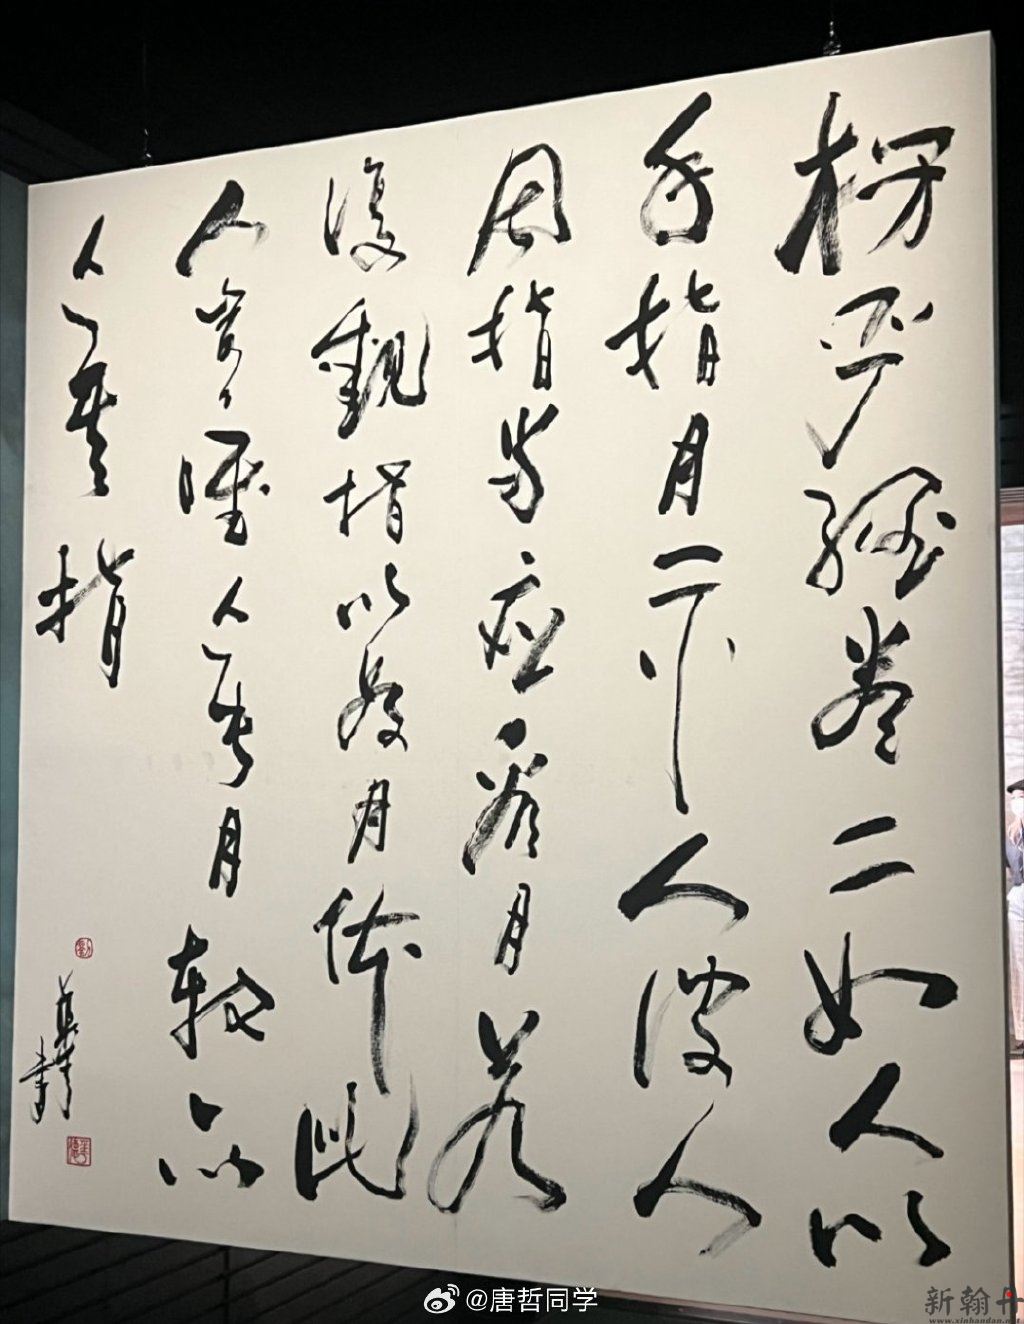 楞严經卷二如人以
手指月示人彼人
因指当应看月若
復觀指以为月体此
人岂唯亡失月轮亦
亡其指
@唐哲同学
新翰丹
www.xinhandan.net